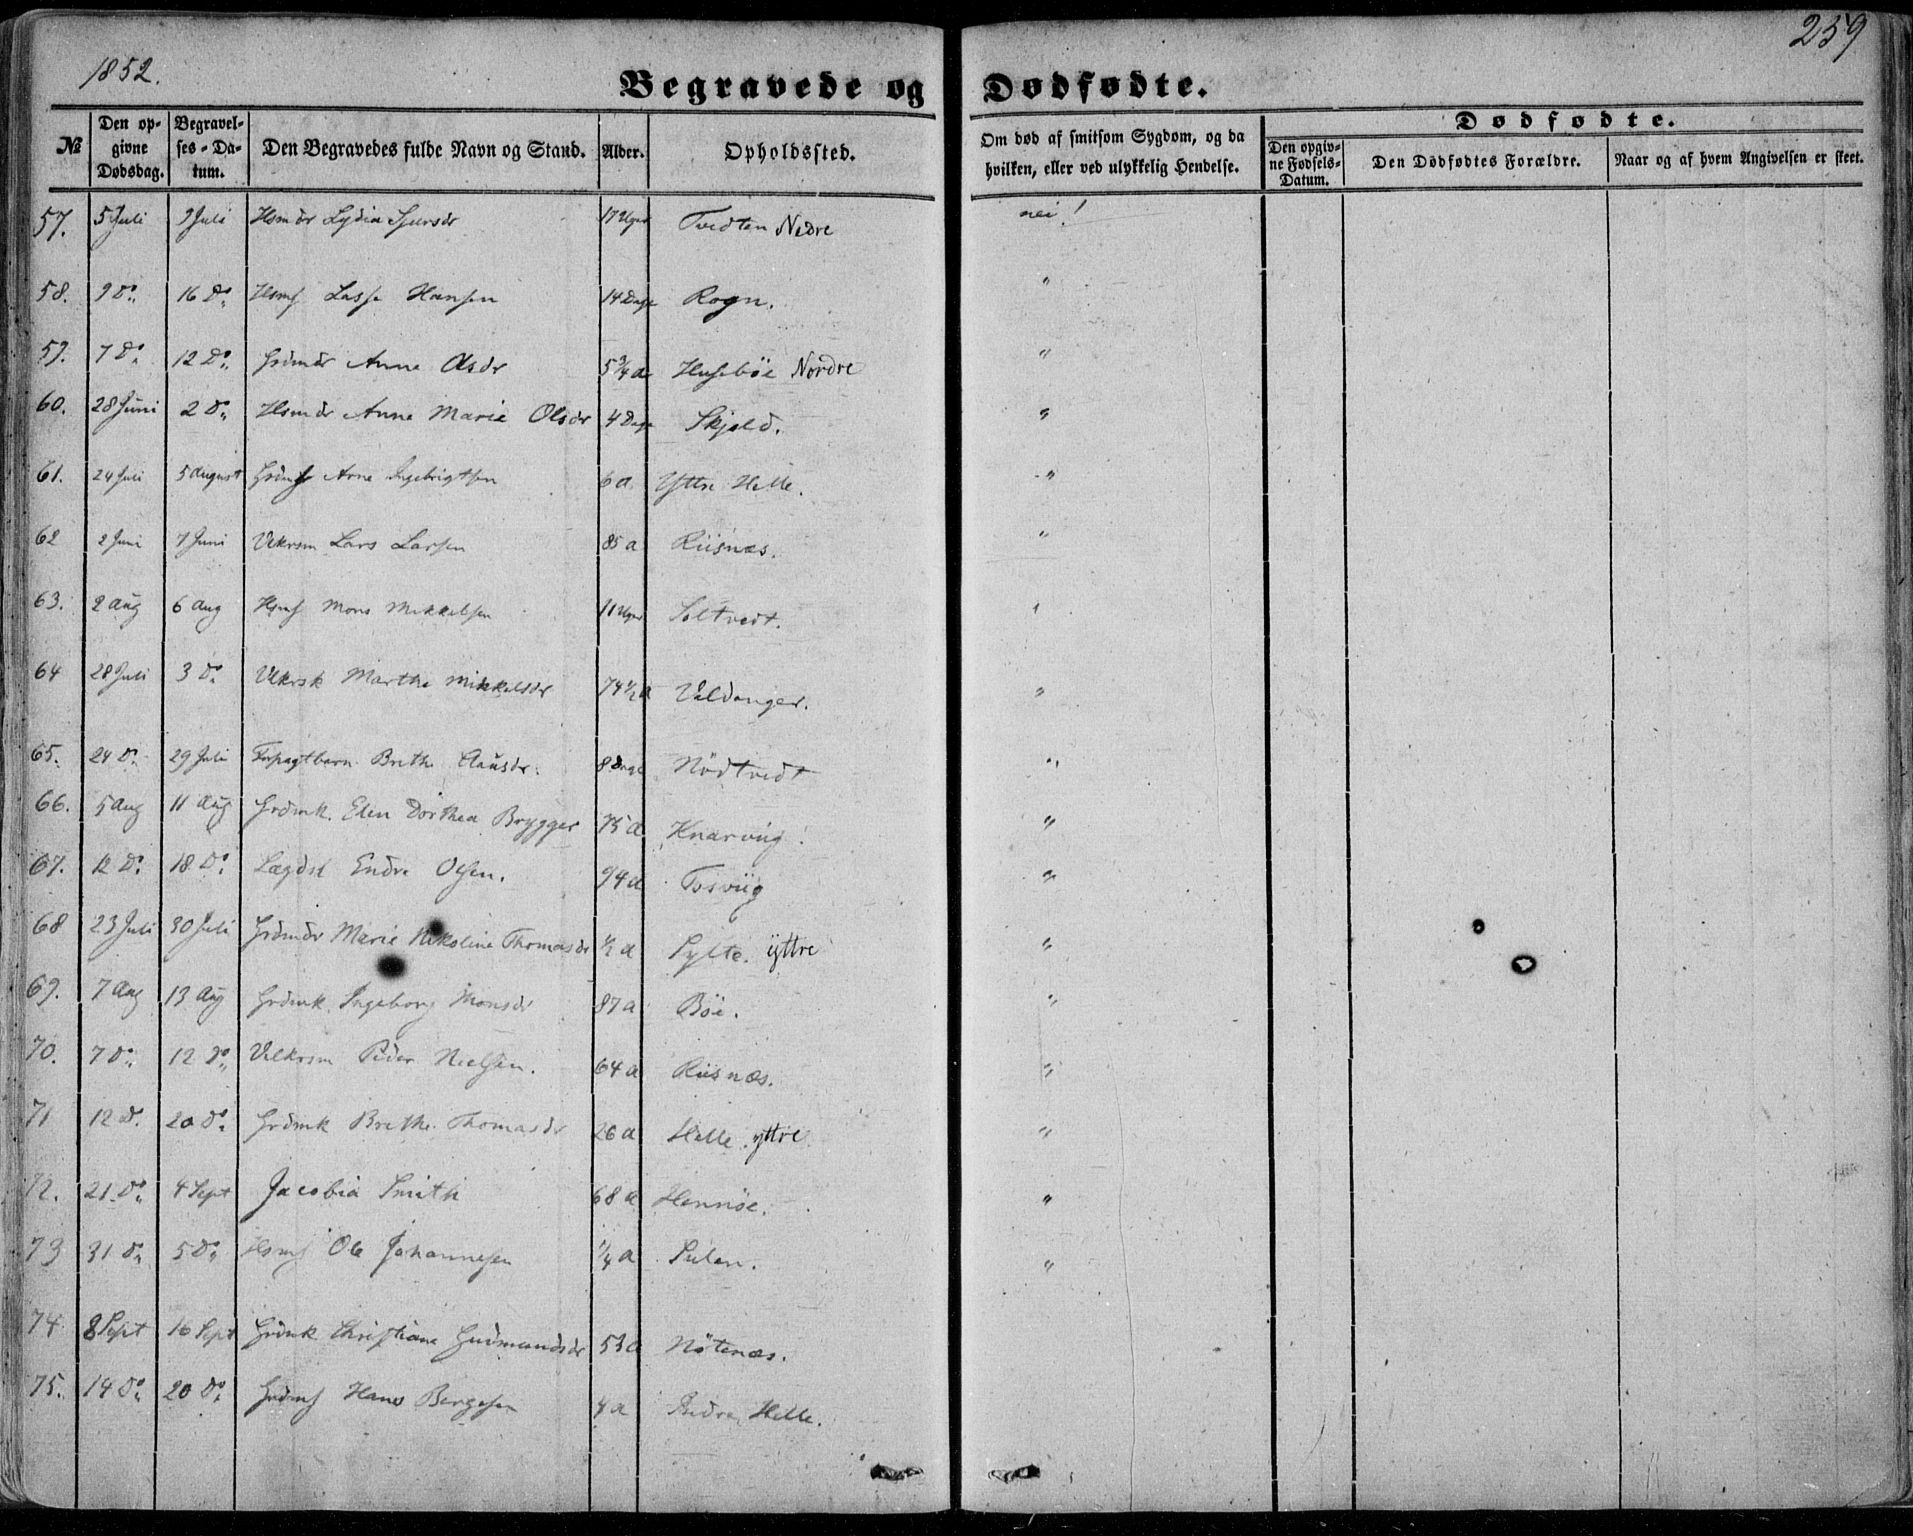 1852.
259
Begravede og Dødfødte.
№ | Den opgivne Dødsdag. | Begravelses-Datum. | Den Begravedes fulde Navn og Stand. | Alder. | Opholdssted. | Om død af smitsom Sygdom, og da hvilken, eller ved ulykkelig Hendelse. | Dødfødte. | Den opgivne Fødsels-Datum. | Den Dødfødtes Forældre. | Naar og af hvem Angivelsen er skeet.
57. | 5 Juli | 9 Juli | Hsmdr Lydia Sjursdr | 17 Uger | Tvedten Nedre | nei!
58. | 9 Do | 16 Do | Hsms Lasse Hansen | 14 Dage | Rogn. | "
59. | 7 Do | 12 Do | Grdmdr Anne Olsdr | 5¾ a | Husebøe Nordre | "
60. | 28 Juni | 2 Do | Hsmdr Anne Marie Olsdr | 4 Dage | Skjeld. | "
61. | 24 Juli | 5 August | Grdms Arne Ingebrigtsen | 6 a | Yttre Helle. | "
62 | 2 Juni | 7 Juni | Vlkrsm Lars Larsen | 85 a | Riisnæs. | "
63. | 2 Aug | 6 Aug | Hsms Mons Mikkelsen | 11 Uger | Soltvedt. | "
64 | 28 Juli | 3 Do | Vlkrsk Marthe Mikkelsdr | 74½ a | Valdanger. | "
65. | 24 Do | 29 Juli | Brithe Clausdr. | 8 Dage | Nødtvedt | "
66. | 5 Aug | 11 Aug | Grdmk. Elen Dorthea Brygger | 75 a | Knarviig! | "
67. | 12 Do | 18 Do | Lægdsl Endre Olsen. | 94 a | Tosviig | "
68 | 23 Juli | 30 Juli | Grdmdr Marie Nikoline Thomasdr | ½ a | Sylte. yttre | "
69. | 7 Aug | 13 Aug | Grdmk. Ingeborg Monsdr | 87 a | Bøe. | "
70. | 7 Do | 12 Do | Vlkrsm Peder Nielsen. | 64 a | Riisnæs. | "
71 | 12 Do | 20 Do | Grdmk Brithe Thomasdr | 26 a | Helle. yttre | "
72. | 21 Do | 4 Sept | Jacobia Smith | 68 a | Hennøe. | "
73 | 31 Do | 5 Do | Hsms Ole Johannesen | ¼ a | Sulen. | "
74 | 8 Sept | 16 Sept | Grdmk Christiane Gudmundsdr | 53 a | Nøtenæs.
75. | 14 Do | 20 Do | Grdms Hans Bergesen | 4 a | Helle.